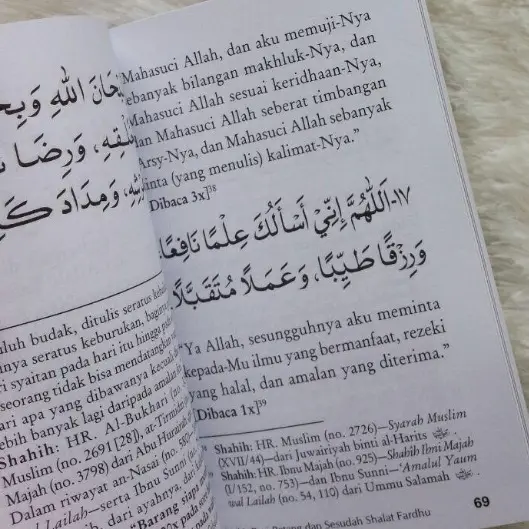 حَانَ اللهِ وَبِحَ
لْقِهِ، وَرِضَا
وَمِدَادَ كَ
luluh budak, ditulis seratus
nya seratus keburukan,
ri syaitan pada hari itu hingga
seorang tidak bisa mendatangkan
ari apa yang dibawanya kecuali
lebih banyak lagi daripada amalan
Shahih: HR. Al-Bukhari (no.
Muslim (no. 2691 [28]), at-Tirmidzi
Majah (no. 3798) dari Abu Hurairah
Dalam riwayat an-Nasai (no.
Lailah—serta Ibnu Sunni (no.
dari ayahnya, dari
"Barang siapa
Mahasuci Allah, dan aku memuji-Nya
sebanyak bilangan makhluk-Nya, dan
Mahasuci Allah sesuai keridhaan-Nya,
dan Mahasuci Allah seberat timbangan
'Arsy-Nya, dan Mahasuci Allah sebanyak
tinta (yang menulis) kalimat-Nya."
[Dibaca 3x]³⁸
١٧- اَللّٰهُمَّ إِنِّيْ أَسْأَلُكَ عِلْمًا نَافِعًا،
وَرِزْقًا طَيِّبًا، وَعَمَلًا مُتَقَبَّلًا
"Ya Allah, sesungguhnya aku meminta
kepada-Mu ilmu yang bermanfaat, rezeki
yang halal, dan amalan yang diterima."
[Dibaca 1x]³⁹
Shahih: HR. Muslim (no. 2726)—Syarah Muslim
(XVII/44)—dari Juwairiyah binti al-Harits
Shahih: HR. Ibnu Majah (no. 925)—Shahih Ibni Majah
(I/152, no. 753)—dan Ibnu Sunni—'Amalul Yaum
wal Lailah (no. 54, 110) dari Ummu Salamah
Petang dan Sesudah Shalat Fardhu
69